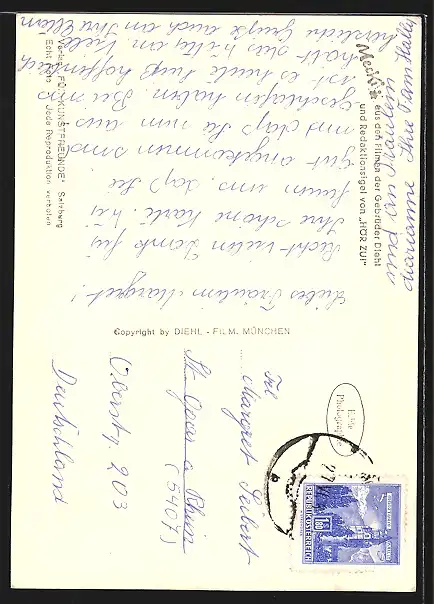 Mecki
aus den Filmen der Gebrüder Diehl
und Redaktionsigel von „HÖR ZU!"
Liebes Fräulein Margret!
Recht vielen Dank für
Ihre schöne Karte. Wir
freuen uns, daß Sie
gut angekommen sind
und daß Sie nun aus-
geschlafen haben. Bei uns
ist es heute
halt das
herzliche Grüße auch an Ihre Eltern
und an Fräulein
Marianne Ihre Fam.
Verlag „FÜR KUNSTFREUNDE" Salzburg
Echt Foto Jede Reproduktion verboten
Copyright by DIEHL - FILM, MÜNCHEN
REPUBLIK ÖSTERREICH
1.80
Frl
Margret Seibert
St. Goar a Rhein
(5407)
Oberstr. 203
Deutschland